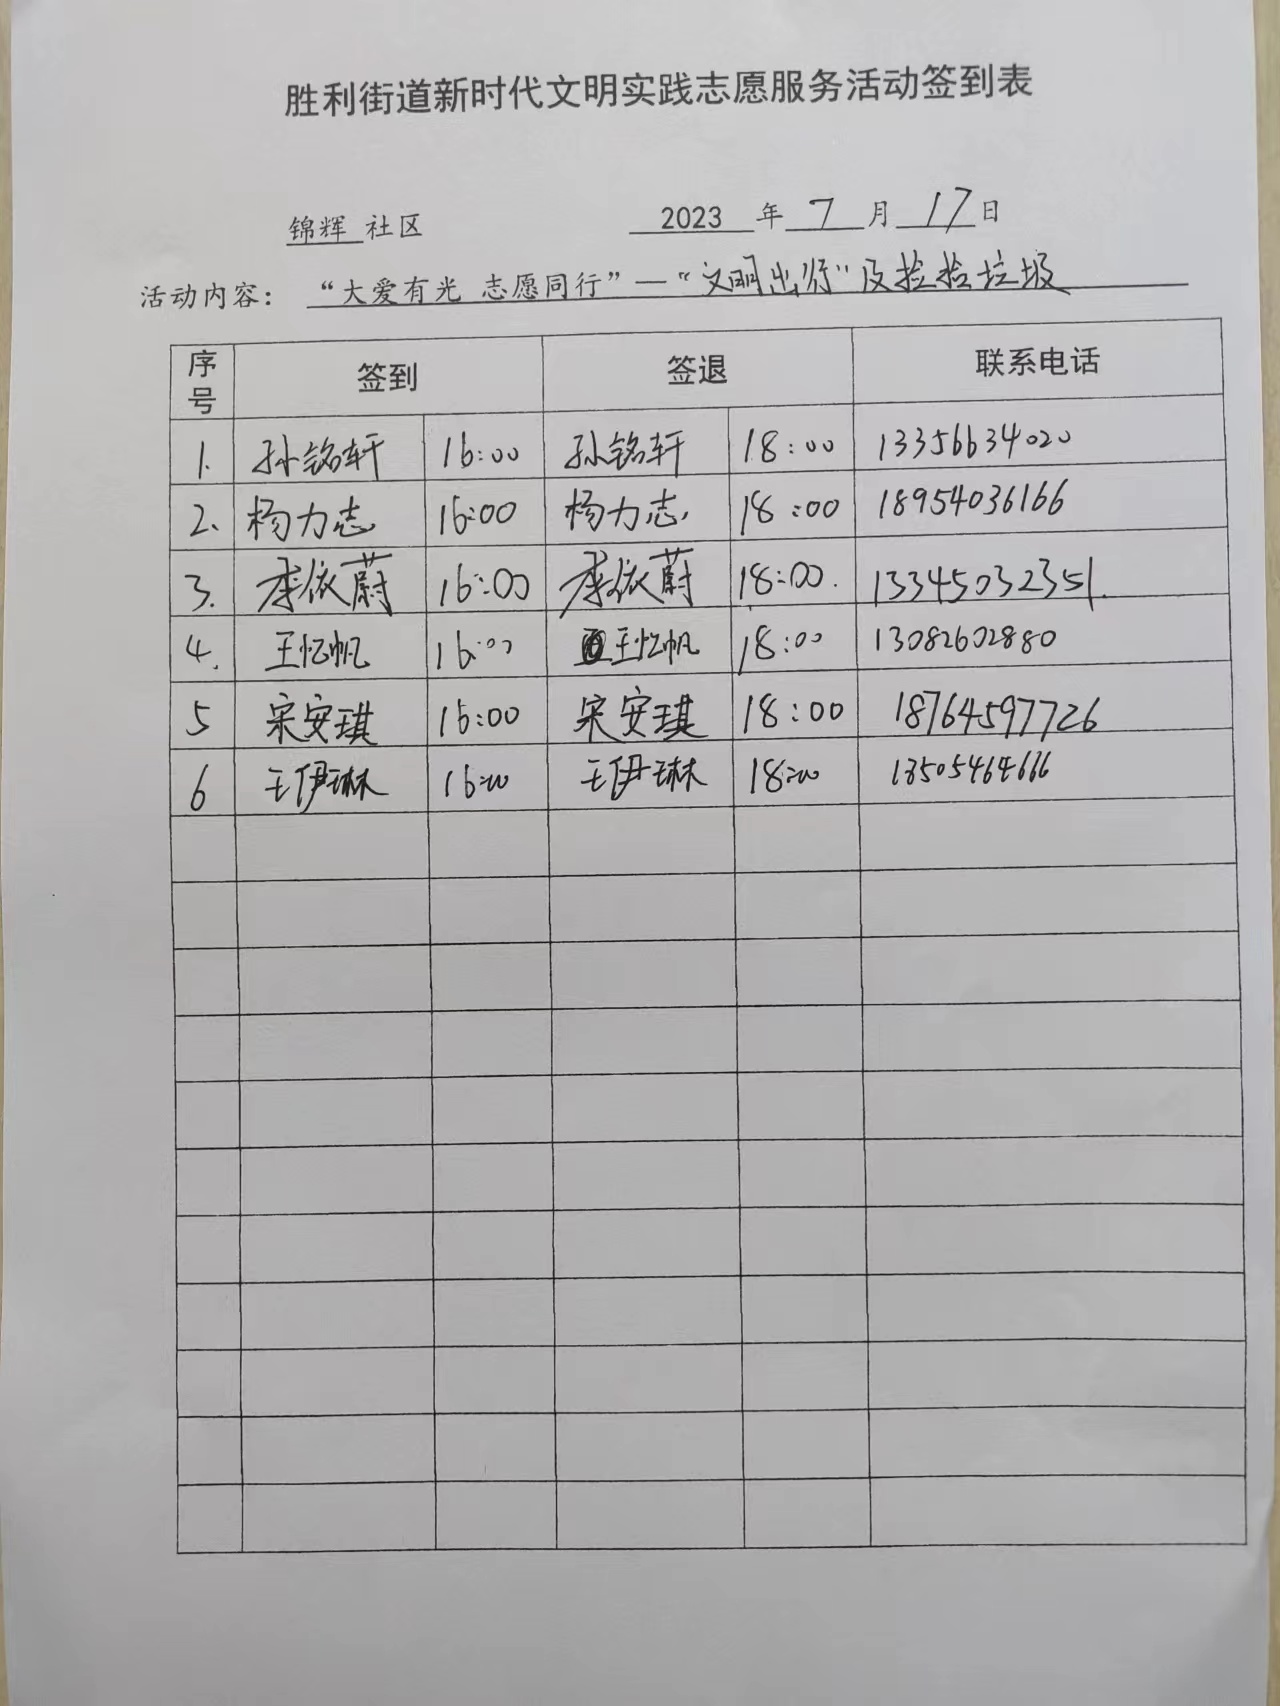 胜利街道新时代文明实践志愿服务活动签到表
锦辉 社区 2023 年 7 月 17 日
活动内容： “大爱有光 志愿同行”—“文明出行”及捡捡垃圾
序号 签到 签退 联系电话
1. 孙铭轩 16:00 孙铭轩 18:00 13356634020
2. 杨力志 16:00 杨力志 18:00 18954036166
3. 李依蔚 16:00 李依蔚 18:00. 13345032351.
4. 王忆帆 16:00 王忆帆 18:00 13082602880
5 宋安琪 16:00 宋安琪 18:00 18764597726
6 王伊琳 16:00 王伊琳 18:00 13505464666